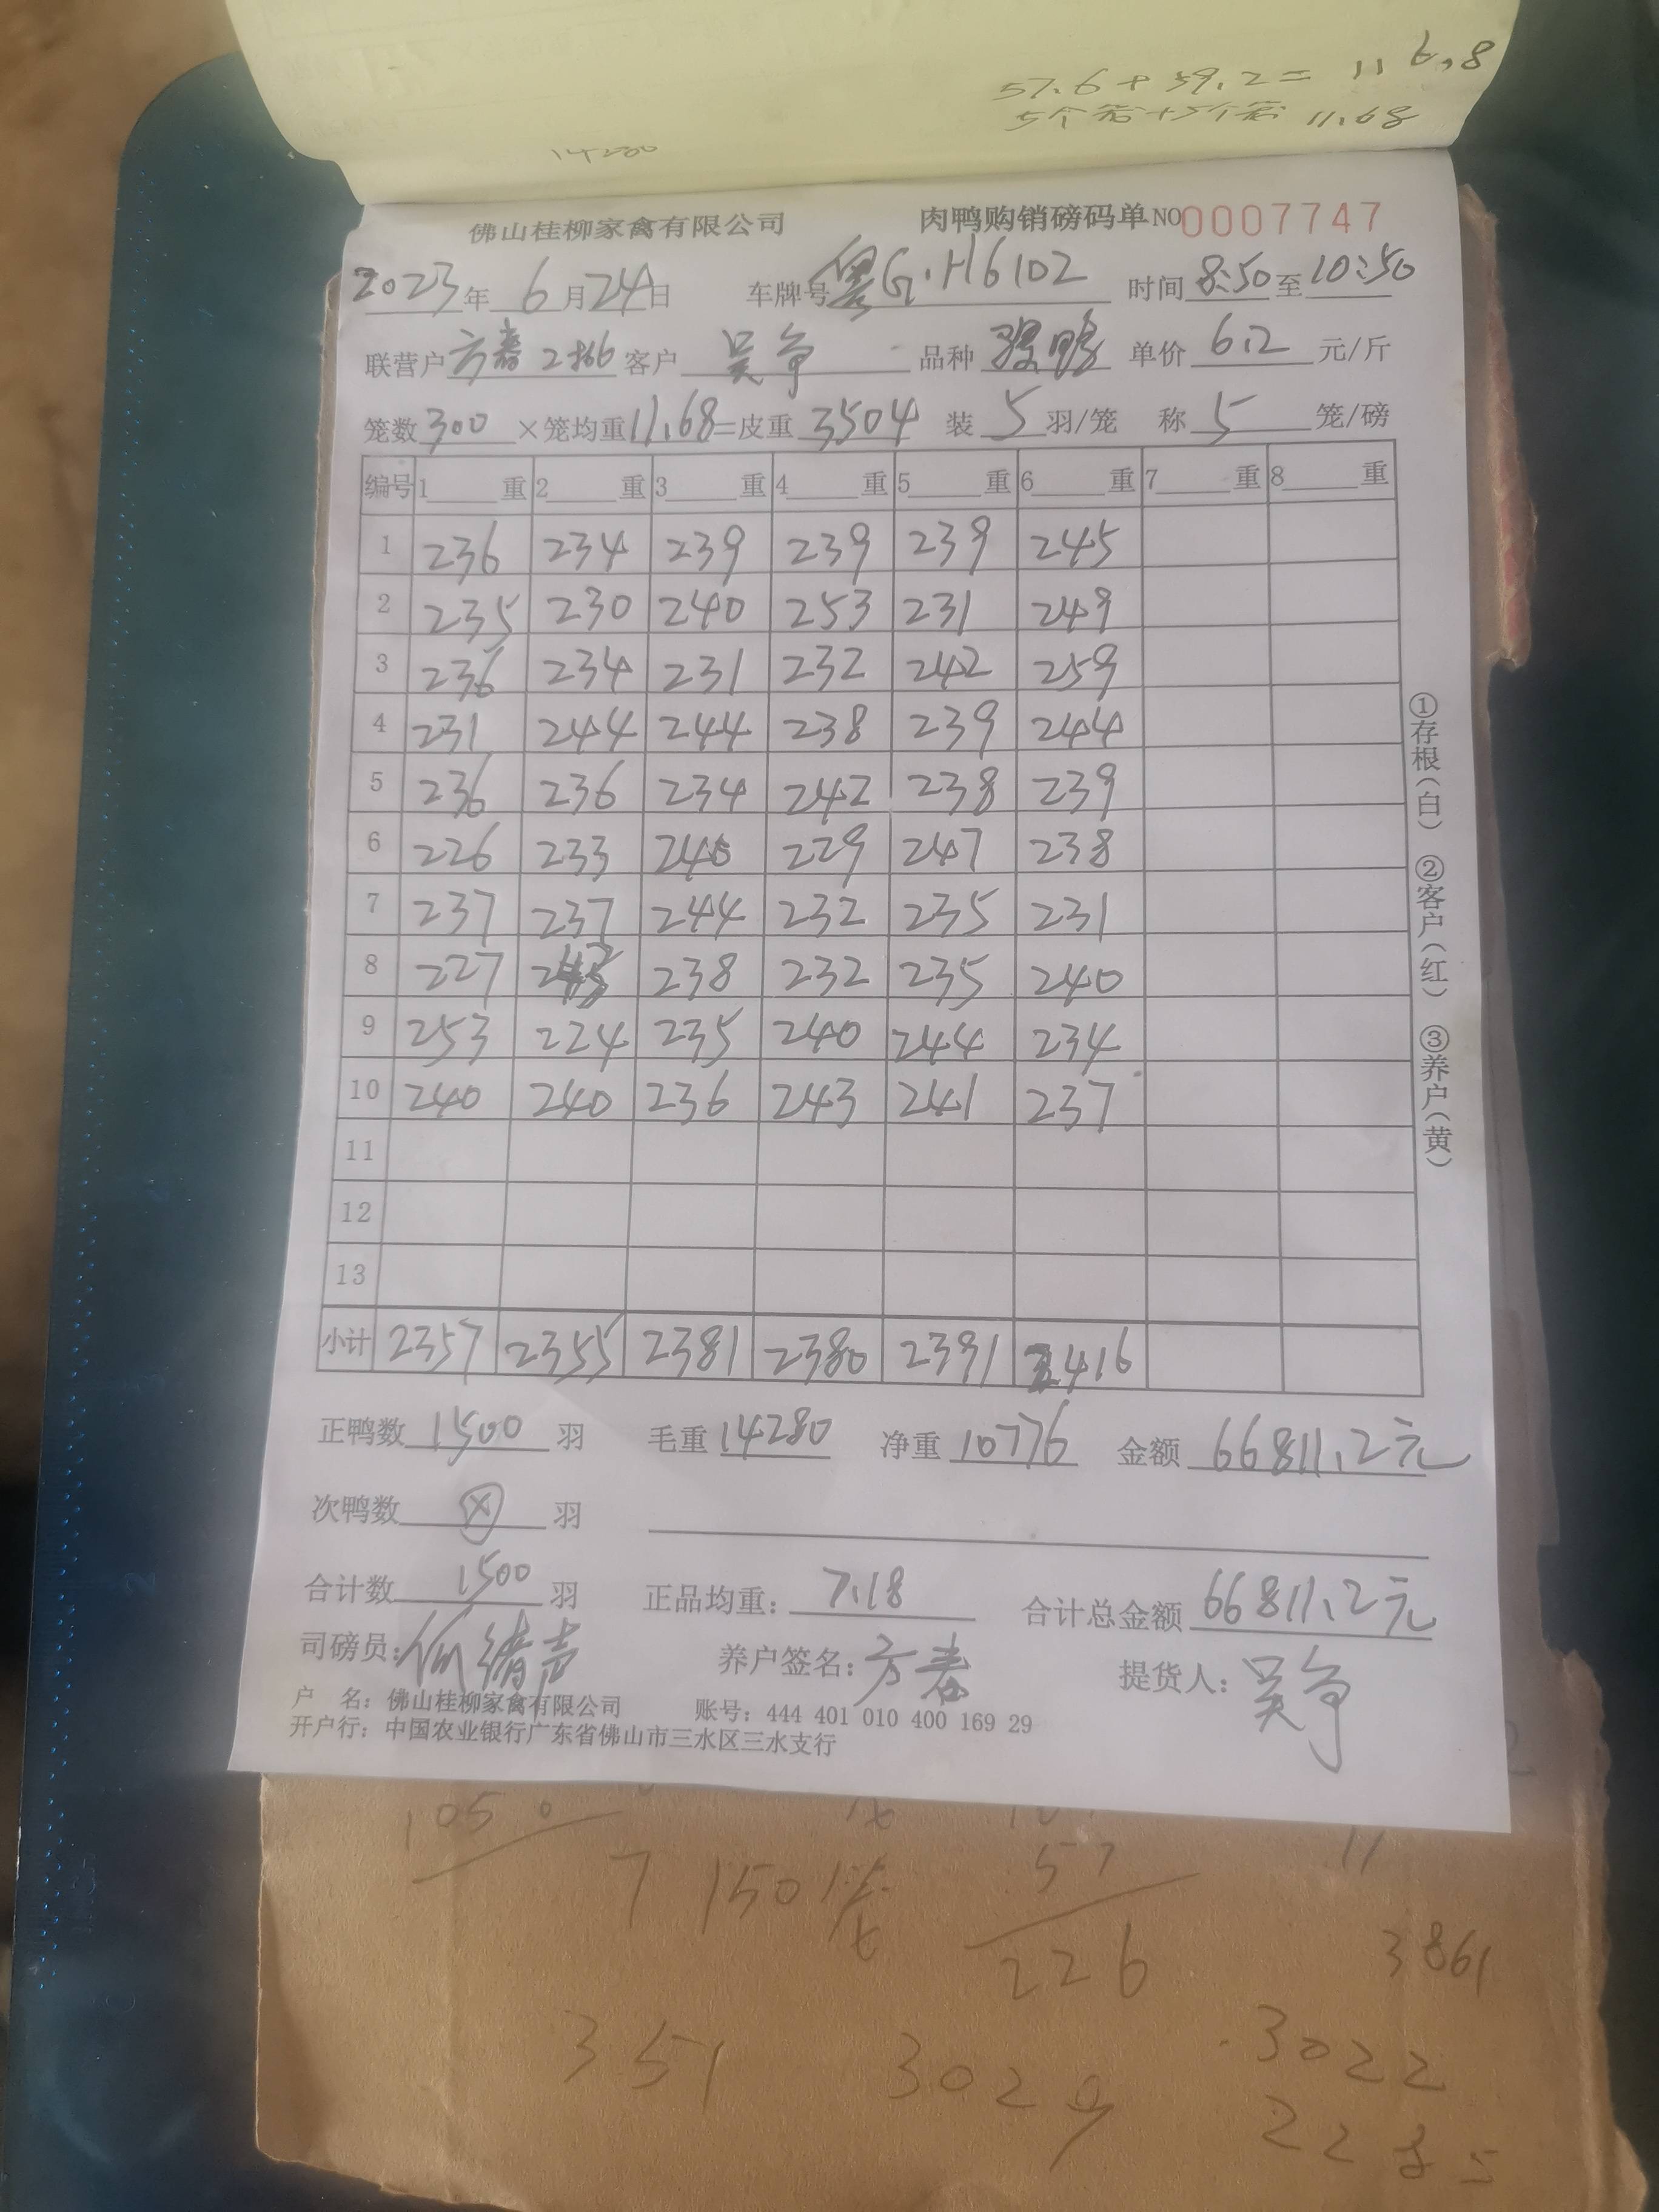 57.6+59.2=116.8
5个 +5个 11.68
14280
佛山桂柳家禽有限公司 肉鸭购销磅码单 NO 0007747
2023年 6月24日 车牌号 粤G·H6102 时间 8:50 至 10:50
联营户 方春 客户 吴争 品种 鸭 单价 6.2 元/斤
笼数 300 ×笼均重 11.68 =皮重 3504 装 5 羽/笼 称 5 笼/磅
编号 1 重 2 重 3 重 4 重 5 重 6 重 7 重 8 重
1 236 234 239 239 239 245
2 235 230 240 253 231 249
3 236 234 231 232 242 259
4 231 244 244 238 239 244
5 236 236 234 242 238 239
6 226 233 240 229 247 238
7 237 237 244 232 235 231
8 227 238 232 235 240
9 253 224 235 240 244 234
10 240 240 236 243 241 237
11
12
13
小计 2357 2355 2381 2380 2391 2416
①存根(白) ②客户(红) ③养户(黄)
正鸭数 1500 羽 毛重 14280 净重 10776 金额 66811.2元
次鸭数 羽
合计数 1500 羽 正品均重: 7.18 合计总金额 66811.2元
司磅员: 养户签名: 方春 提货人: 吴争
户 名: 佛山桂柳家禽有限公司 账号: 444 401 010 400 169 29
开户行: 中国农业银行广东省佛山市三水区三水支行
1050
7 1501 57 11
226 3861
351 3029 3022